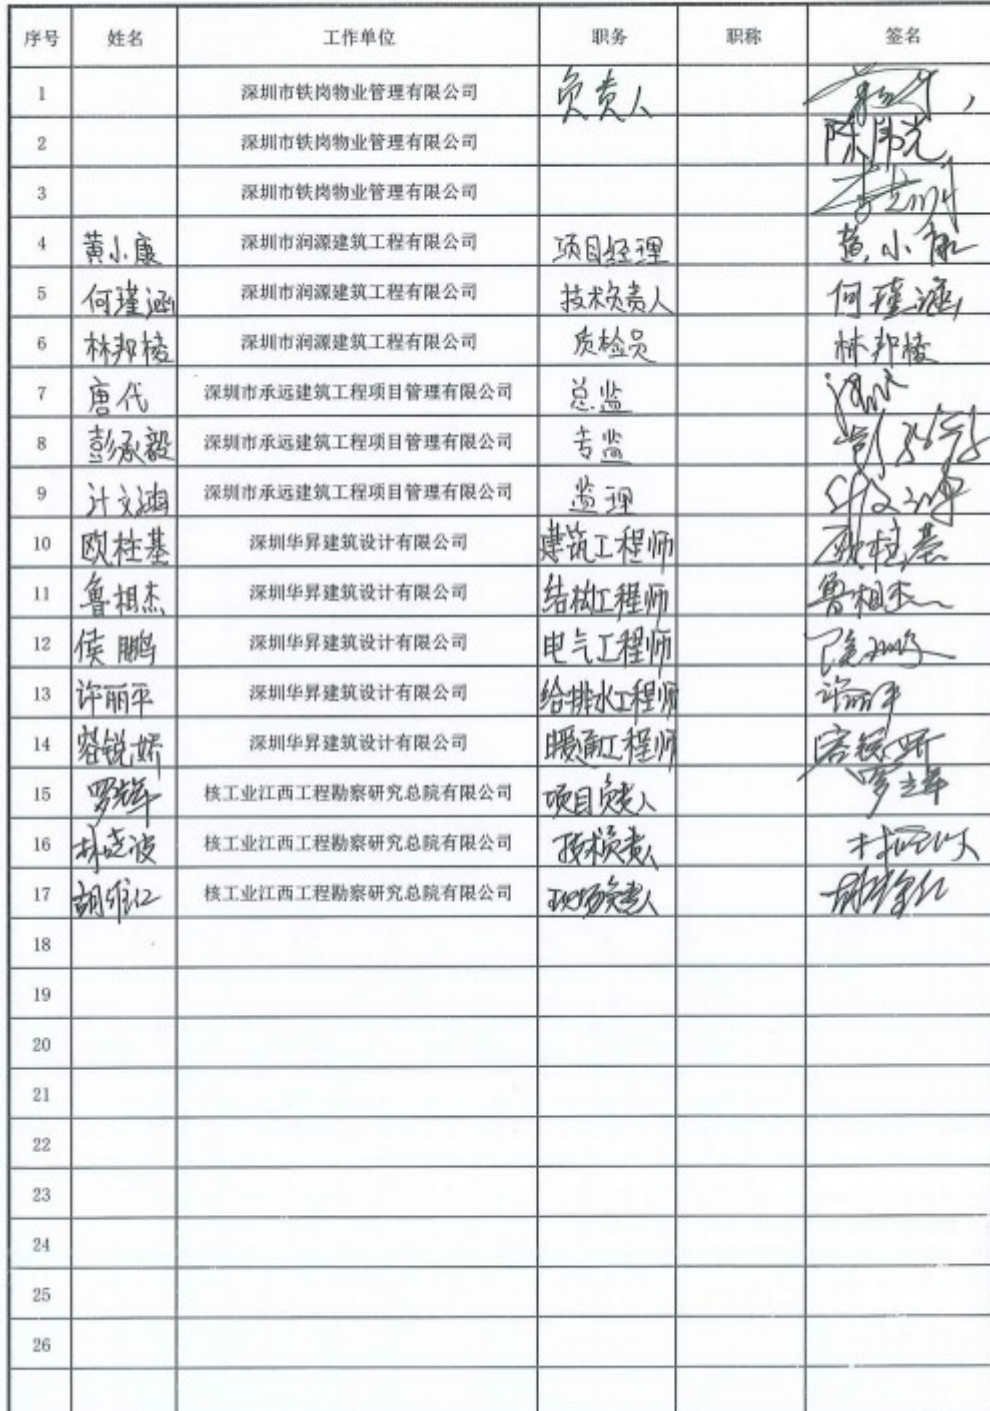 序号 姓名 工作单位 职务 职称 签名
1 深圳市铁岗物业管理有限公司 负责人
2 深圳市铁岗物业管理有限公司 陈伟光
3 深圳市铁岗物业管理有限公司
4 黄小康 深圳市润源建筑工程有限公司 项目经理 黄小康
5 何瑾涵 深圳市润源建筑工程有限公司 技术负责人 何瑾涵
6 林邦棱 深圳市润源建筑工程有限公司 质检员 林邦棱
7 唐代 深圳市承远建筑工程项目管理有限公司 总监
8 彭承毅 深圳市承远建筑工程项目管理有限公司 专监
9 计文 深圳市承远建筑工程项目管理有限公司 监理
10 欧柱基 深圳华昇建筑设计有限公司 建筑工程师 欧柱基
11 鲁相杰 深圳华昇建筑设计有限公司 结构工程师 鲁相杰
12 侯鹏 深圳华昇建筑设计有限公司 电气工程师
13 许丽平 深圳华昇建筑设计有限公司 给排水工程师 许丽平
14 容锐娇 深圳华昇建筑设计有限公司 暖通工程师 容锐娇
15 罗辉 核工业江西工程勘察研究总院有限公司 项目负责人 罗辉
16 林晓波 核工业江西工程勘察研究总院有限公司 技术负责人
17 胡维仁 核工业江西工程勘察研究总院有限公司 现场负责人 胡维仁
18
19
20
21
22
23
24
25
26